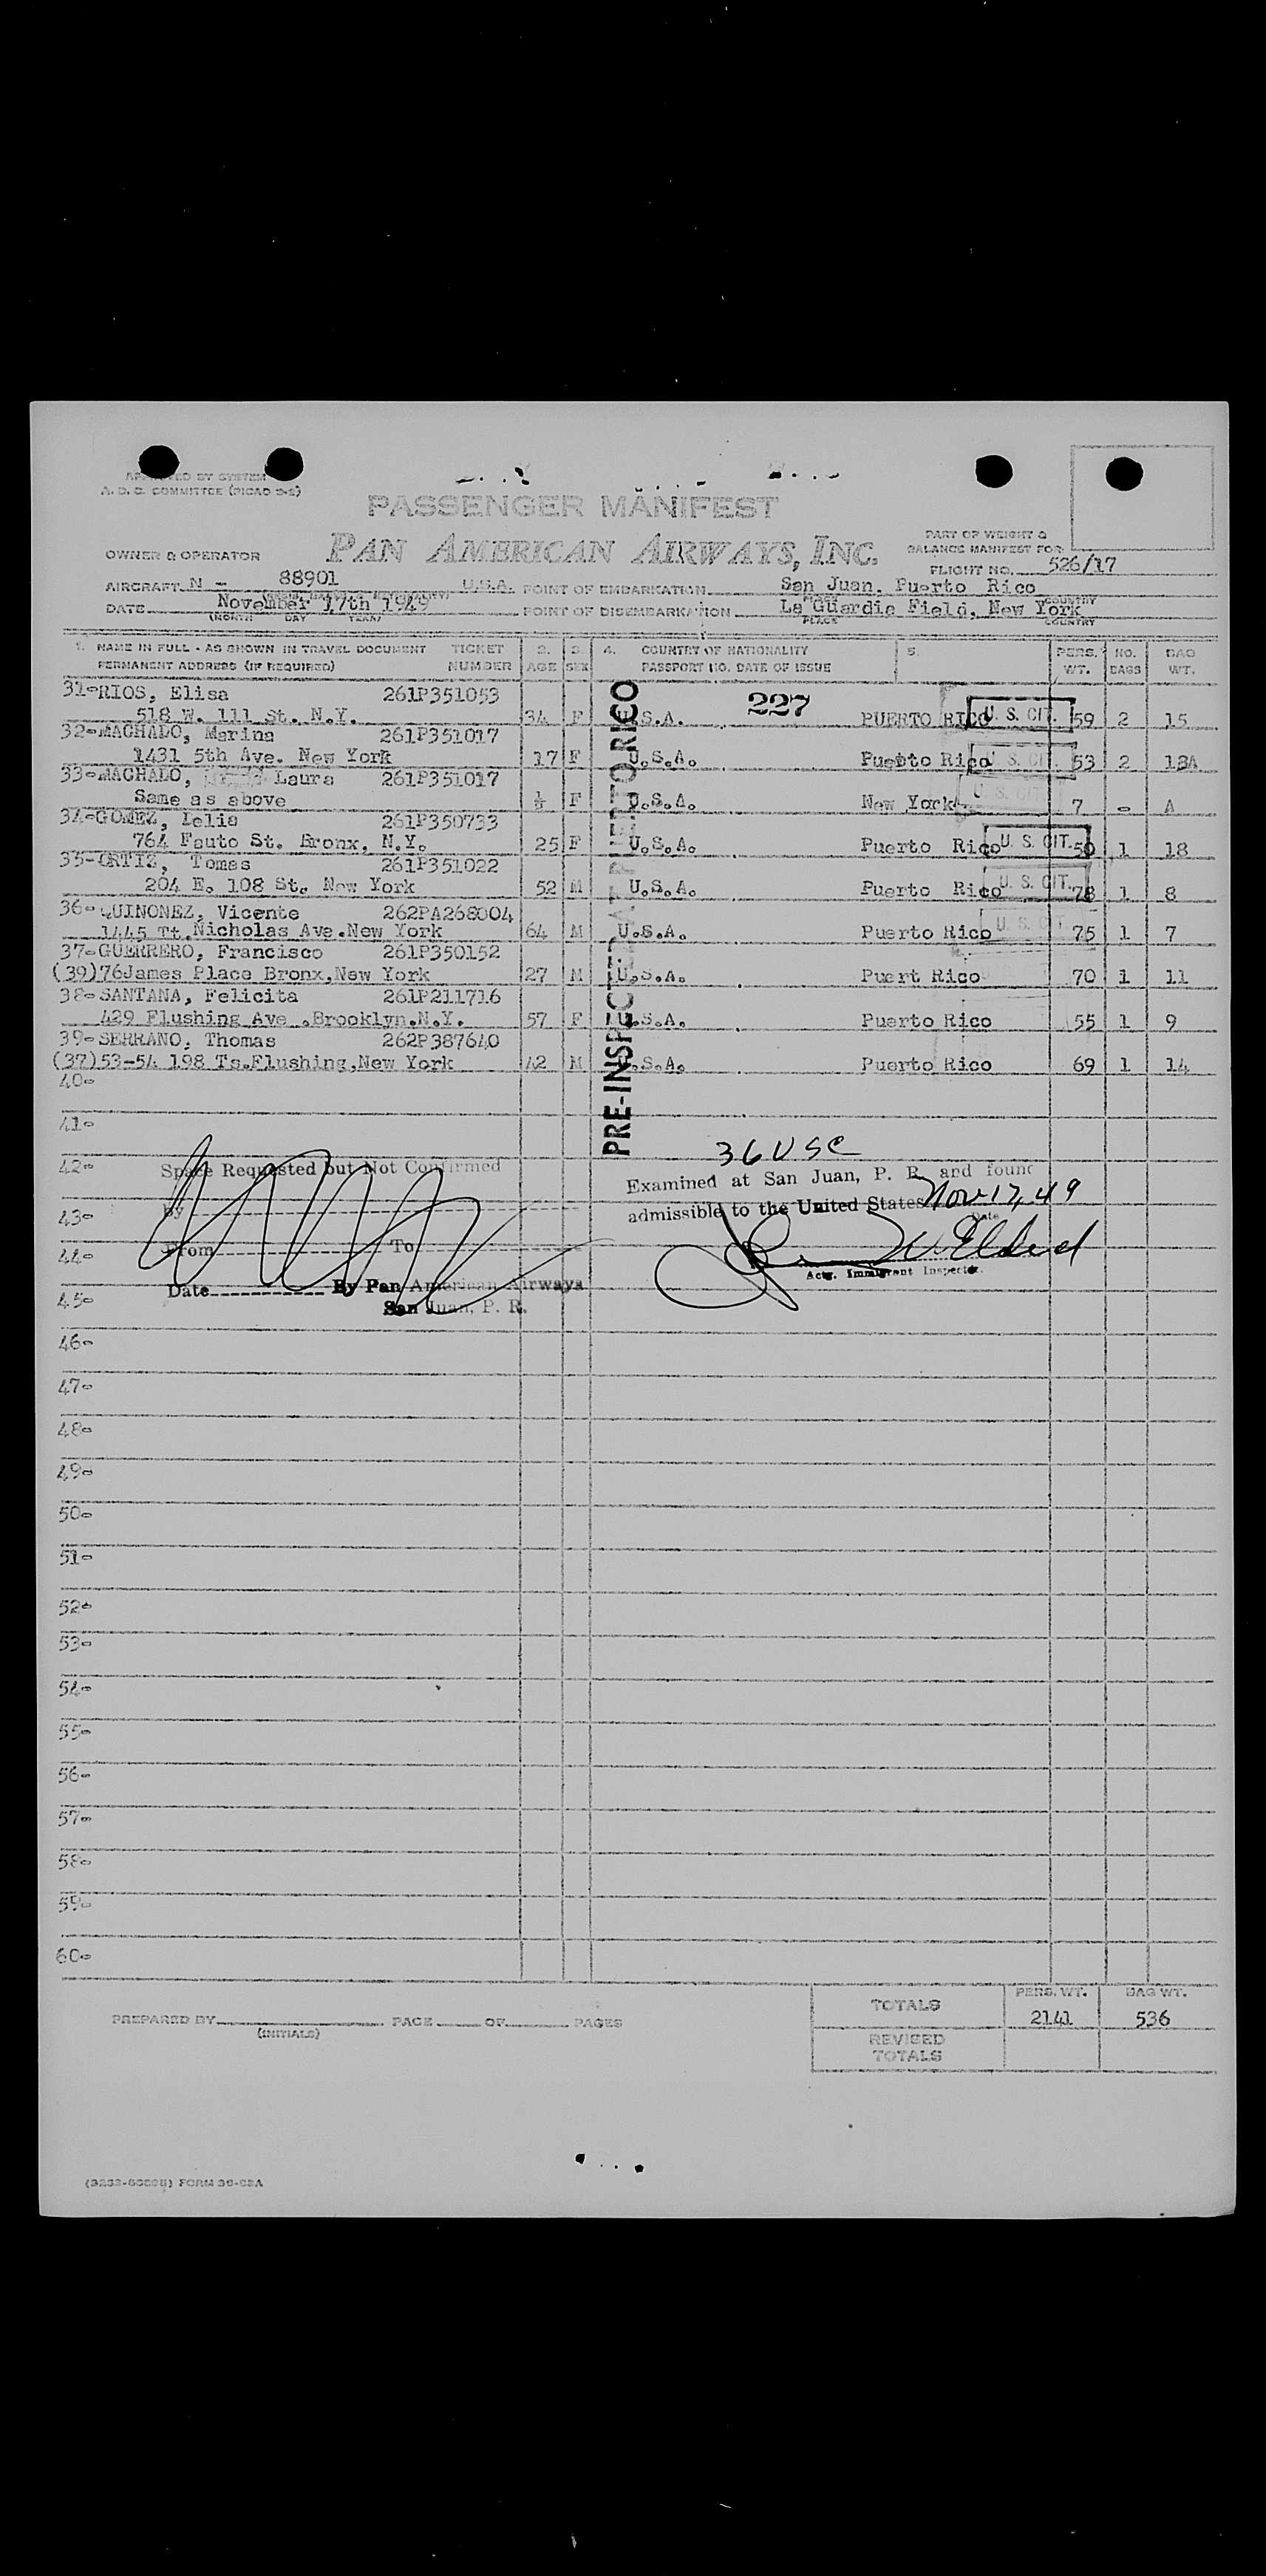 APPROVED BY SYSTEM
A. D. C. COMMITTEE (PICAO 9-2)
PASSENGER MANIFEST
PAN AMERICAN AIRWAYS, INC.
OWNER & OPERATOR
PART OF WEIGHT &
BALANCE MANIFEST FOR
FLIGHT NO. 526/17
AIRCRAFT N - 88901 U.S.A. POINT OF EMBARKATION San Juan, Puerto Rico
PLACE COUNTRY
DATE November 17th 1949 POINT OF DISEMBARKATION La Guardia Field, New York
(MONTH DAY YEAR) PLACE COUNTRY
1. NAME IN FULL - AS SHOWN IN TRAVEL DOCUMENT TICKET 2. 3. 4. COUNTRY OF NATIONALITY 5. PERS. NO. BAG
PERMANENT ADDRESS (IF REQUIRED) NUMBER AGE SEX PASSPORT NO. DATE OF ISSUE WT. BAGS WT.
31-RIOS, Elisa 261P351053 227
518 W. 111 St. N.Y. 34 F U.S.A. PUERTO RICO U. S. CIT. 59 2 15
32-MACHADO, Marina 261P351017
1431 5th Ave. New York 17 F U.S.A. Puerto Rico U. S. CIT. 53 2 18A
33-MACHADO, Laura 261P351017
Same as above F U.S.A. New York U. S. CIT. 7 - A
34-GOMEZ, Lelia 261P350733
764 Fauto St. Bronx, N.Y. 25 F U.S.A. Puerto Rico U. S. CIT. 50 1 18
35-ORTIZ, Tomas 261P351022
204 E. 108 St. New York 52 M U.S.A. Puerto Rico U. S. CIT. 78 1 8
36-QUINONEZ, Vicente 262PA268004
1445 Tt.Nicholas Ave.New York 64 M U.S.A. Puerto Rico U. S. CIT. 75 1 7
37-GUERRERO, Francisco 261P350152
(39)76James Place Bronx,New York 27 M U.S.A. Puert Rico 70 1 11
38-SANTANA, Felicita 261P211716
429 Flushing Ave .Brooklyn.N.Y. 57 F U.S.A. Puerto Rico 55 1 9
39-SERRANO, Thomas 262P387640
(37)53-54 198 Ts.Flushing,New York 42 M U.S.A. Puerto Rico 69 1 14
PRE-INSPECTED AT PUERTO RICO
40-
41-
36 USC
42- Space Requested but Not Confirmed
Examined at San Juan, P. R. and found
43- by
admissible to the United States Nov 17, 49
Date
44- From To
Actg. Immigrant Inspector.
Date By Pan American Airways
45- San Juan, P. R.
46-
47-
48-
49-
50-
51-
52-
53-
54-
55-
56-
57-
58-
59-
60-
TOTALS PERS. WT. BAG WT.
2141 536
PREPARED BY PAGE OF PAGES
(INITIALS)
REVISED
TOTALS
FORM